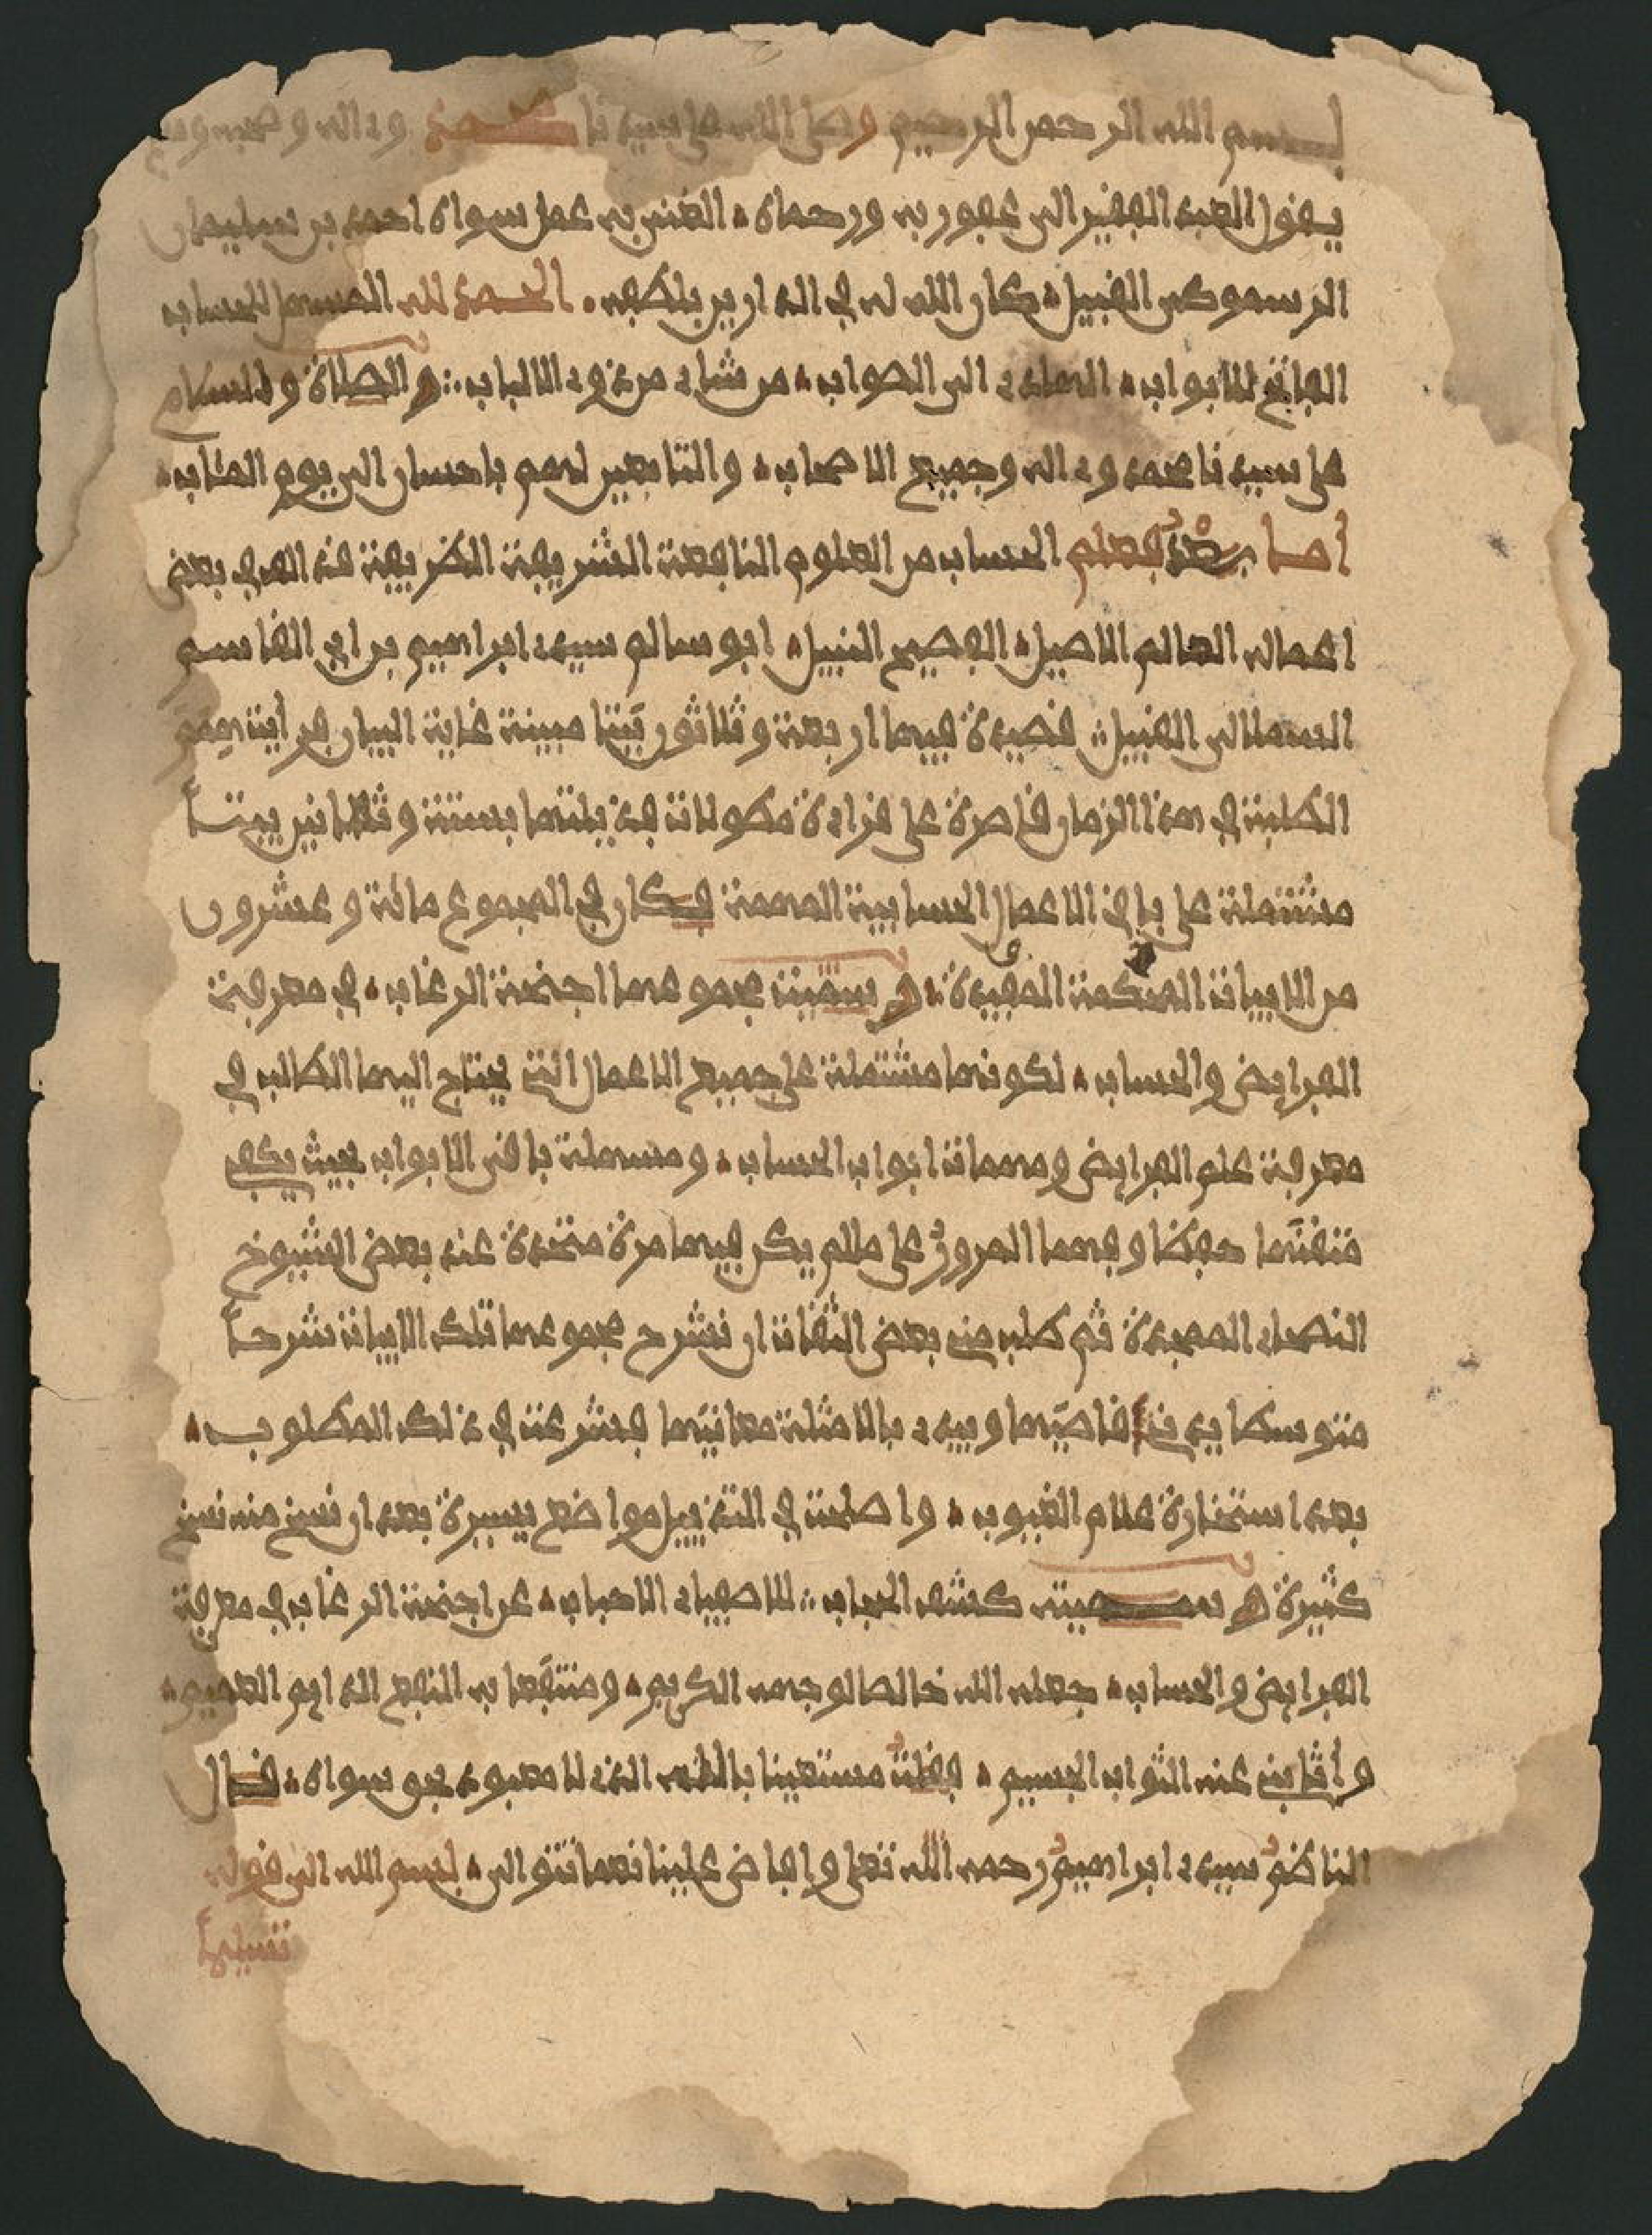 بسم الله الرحمن الرحيم وصلى الله على سيدنا محمد وءاله وصحبه
يقول العبد الفقير الى عفو ربه ورحماه الغنى به عمن سواه احمد بن سليمان
الرسموكى القبيل كان الله له في الدارين بلطفه الحمد لله المسهل الحساب
الفاتح للابواب الهادى الى الصواب من شاء من ذوى الالباب والصلاة والسلام
على سيدنا محمد وءاله وجميع الاصحاب والتابعين لهم باحسان الى يوم المئاب
اما بعد فعلم الحساب من العلوم النافعة الشريفة الظريفة قد الف في بعض
اعماله العالم الاصيل الفصيح النبيل ابو سالم سيدى ابراهيم بن ابي القاسم
السملالى القبيل قصيدة فيها اربعة وثلاثون بيتا مبينة غاية البيان فرأيت همم
الطلبة في هذا الزمان قاصرة على قراءة مطولات فذيلتها بستة وثمانين بيتاً
مشتملة على باقي الاعمال الحسابية المهمة فكان في المجموع مائة وعشرون
من الابيات المحكمة المفيدة وسميت مجموعها اجنحة الرغاب في معرفة
الفرايض والحساب لكونها مشتملة على جميع الاعمال التي يحتاج اليها الطالب في
معرفة علم الفرايض ومهمات ابواب الحساب ومسهلة باقى الابواب بحيث يكفي
متقنها حفظا وفهما المرور على ما لم يكن فيها مرة متحدة عند بعض الشيوخ
النصحاء المجيدة ثم طلب مني بعض الثقات ان نشرح مجموعها تلك الابيات شرحاً
متوسطا يدني قاصيها ويبيد بالامثلة معانيها فشرعت في ذلك المطلوب
بعد استخارة علام الغيوب واصلحت في التذييل مواضع يسيرة بعد ان نسخ منه نسخ
كثيرة وسميته كشف الحجاب للاصفياء الاحباب عن اجنحة الرغاب في معرفة
الفرايض والحساب جعله الله خالصا لوجهه الكريم ومنتفعا به النفع الدايم العميم
وأثابني عنه الثواب الجسيم فقلت مستعينا بالله الذى لا معبود بحق سواه قال
الناظم سيدى ابراهيم رحمه الله تعلى وافاض علينا نعما تتوالى بسم الله الى قوله
تسبيلها